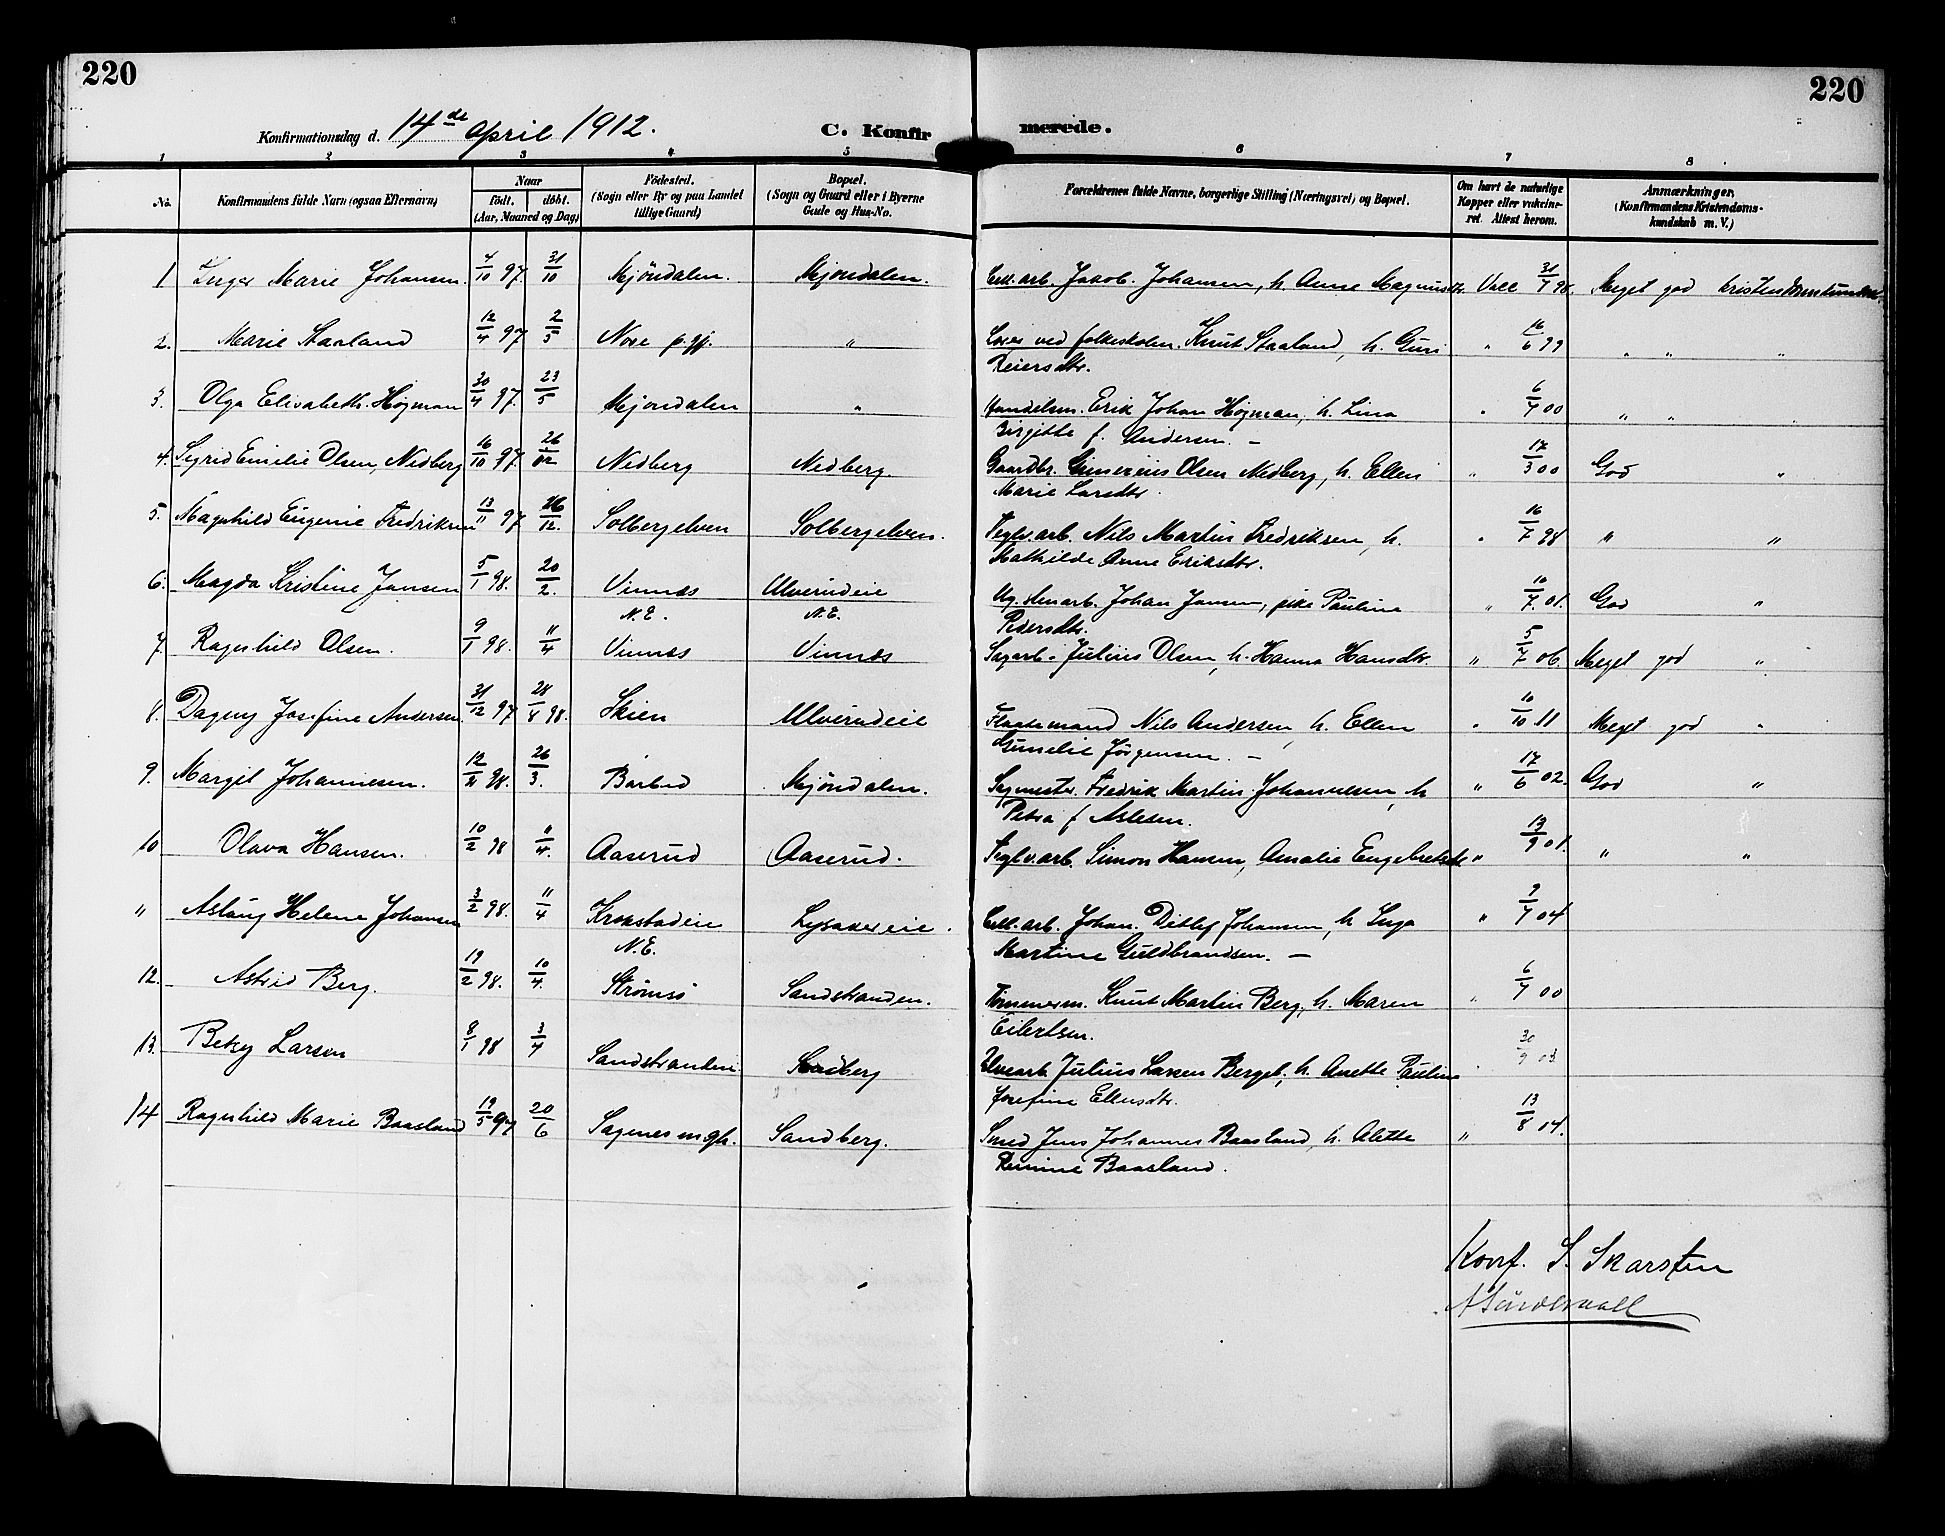 220
220
Konfirmationsdag d. 14de April 1912.
C. Konfir merede.
1 2 3 4 5 6 7 8
No.
Konfirmandens fulde Navn (ogsaa Efternavn)
Naar
födt. döbt.
(Aar, Maaned og Dag)
Födested.
(Sogn eller By og paa Landet
tillige Gaard)
Bopæl.
(Sogn og Gaard eller i Byerne
Gade og Hus-No.
Forældrenes fulde Navne, borgerlige Stilling (Næringsvei) og Bopæl.
Om havt de naturlige
Kopper eller vakcine-
ret. Attest herom.
Anmærkninger,
(Konfirmandens Kristendoms-
kundskab m. V.)
1 Inger Marie Johansen. 4/10 97. 31/10 Mjöndalen. Mjöndalen. Cell. arb. Jakob Johansen, h. Anne Magnusdtr. Vacc 31/7 98. Meget god kristendomskundsk.
2. Marie Staaland 12/4 97 2/5 Nore p.gj. " Lærer ved folkeskolen Knut Staaland, h. Guri " 16/6 99 " " "
Reiersdtr.
3. Olga Elisabeth Högman 30/4 97. 23/5 Mjöndalen " Handelsm. Erik Johan Högman, h. Lina " 6/7 00 " " "
Birgitte f. Andersen. —
4. Sigrid Emilie Olsen Nedberg 16/10 97. 26/12 Nedberg Nedberg. Gaardbr. Olsen Nedberg, h. Ellen " 17/3 00 God "
Marie Larsdtr.
5. Magnhild Eugenie Fredriksen 13/11 97 26/12. Solbergelven Solbergelven. Teglv.arb. Nils Martin Fredriksen, h. " 16/7 98 " "
Mathilde Anne Eriksdtr.
6. Magda Kristine Jansen 5/1 98. 20/2. Vinnæs Ulverudeie Ug. arb. Johan Jansen, pike Pauline " 10/7. 01. God "
N.E. N.E. Pedersdtr.
7. Ragnhild Olsen. 9/1 98. 11/4 Vinnæs Vinnæs Sagarb. Julius Olsen, h. Hanna Hansdtr. " 5/7 06. Meget god "
8. Dagny Josefine Andersen. 31/12 97 28/8 98. Skien Ulverudeie Flaatemand Nils Andersen, h. Ellen " 10/10 11 Meget god "
Gunelie Jörgensen. —
9. Margit Johannesen. 12/2 98. 26/3. Barbu Mjöndalen. Sagmester. Fredrik Martin Johannesen, h " 17/6 02. God "
Petra f Aslesen.
10 Olava Hansen. 10/2 98 11/4. Aaserud Aaserud. Teglv.arb. Simon Hansen, Amalie Engebretsdtr " 13/9 01. " "
" Aslaug Helene Johansen 3/2 98. 11/4 Krokstadeie Lysakereie. Cell. arb. Johan Ditlef Johansen, h Inga " 9/7 04
N.E. Martine Guldbrandsen. —
12. Astrid Berg. 19/2 98. 10/4. Strömsö Sandstranden. Tömmerm. Knut Martin Berg, h. Maren " 6/7 00
Eilertsen.
13. Betsy Larsen 8/1 98 3/4 Sandstranden Sandberg Julius Larsen Berget, h. Anette Pauline 30/9 03
Josefine Ellensdtr.
14 Ragnhild Marie Baasland 19/5 97 20/6 Sagenes mgh. Sandberg. Smed Jens Johannes Baasland, h. Alette " 13/8 04.
Baasland.
Konf. S. Skarsten